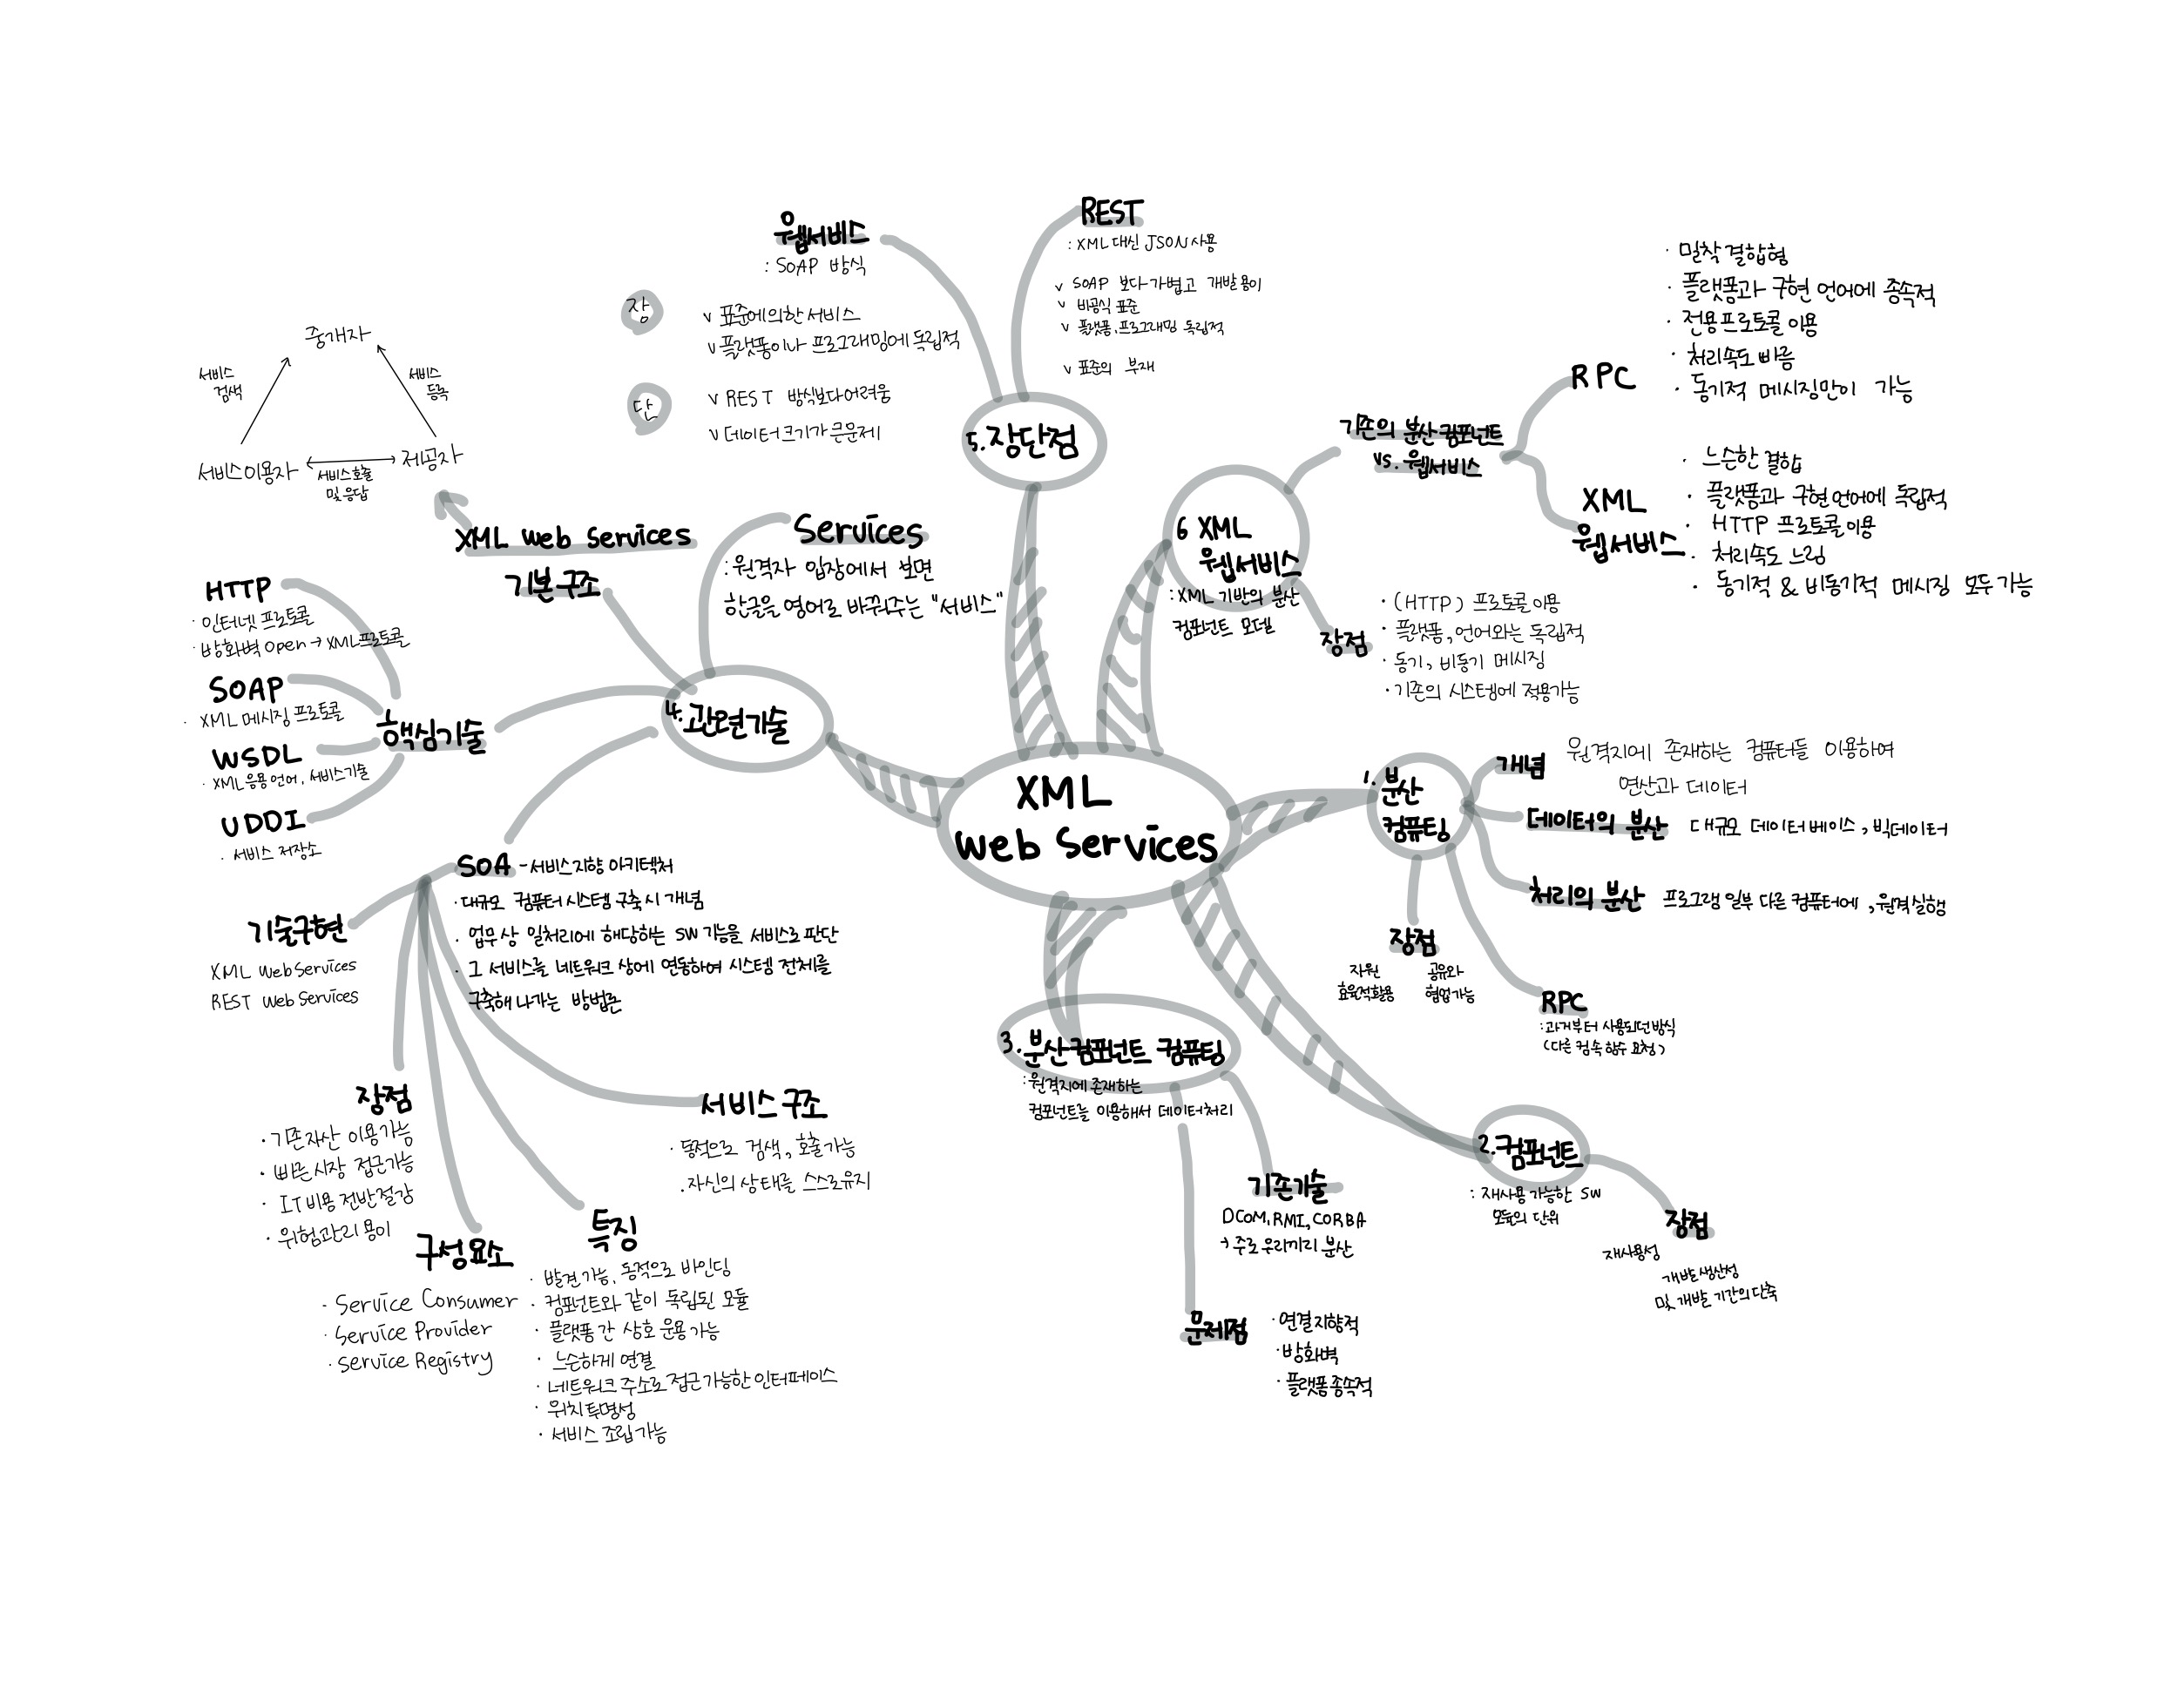 XML
Web Services
1. 분산
컴퓨팅
개념
원격지에 존재하는 컴퓨터들 이용하여
연산과 데이터
데이터의 분산
대규모 데이터베이스, 빅데이터
처리의 분산
프로그램 일부 다른 컴퓨터에, 원격실행
장점
자원
효율적활용
공유와
협업가능
RPC
: 과거부터 사용되던 방식
(다른 컴속 함수 요청)
2. 컴포넌트
: 재사용 가능한 SW
모듈의 단위
장점
재사용성
개발 생산성
및 개발 기간의 단축
3. 분산컴포넌트 컴퓨팅
: 원격지에 존재하는
컴포넌트를 이용해서 데이터처리
기존기술
DCOM, RMI, CORBA
→ 주로 우리끼리 분산
문제점
· 연결지향적
· 방화벽
· 플랫폼종속적
4. 관련기술
Services
: 원격자 입장에서 보면
한글을 영어로 바꿔주는 "서비스"
XML Web Services
기본구조
중개자
서비스
검색
서비스
등록
서비스이용자
제공자
서비스호출
및응답
핵심기술
HTTP
· 인터넷 프로토콜
· 방화벽 Open → XML프로토콜
SOAP
· XML 메시징 프로토콜
WSDL
· XML 응용언어, 서비스기술
UDDI
· 서비스 저장소
SOA - 서비스지향 아키텍처
· 대규모 컴퓨터 시스템 구축 시 개념
· 업무상 일처리에 해당하는 SW 기능을 서비스로 판단
· 그 서비스를 네트워크 상에 연동하여 시스템 전체를
구축해 나가는 방법론
기술구현
XML WebServices
REST Web Services
장점
· 기존자산 이용가능
· 빠른시장 접근가능
· IT비용 전반절감
· 위험관리 용이
구성요소
· Service Consumer
· Service Provider
· Service Registry
특징
· 발견 가능, 동적으로 바인딩
· 컴포넌트와 같이 독립된 모듈
· 플랫폼 간 상호 운용가능
· 느슨하게 연결
· 네트워크 주소로 접근 가능한 인터페이스
· 위치 투명성
· 서비스 조립가능
서비스 구조
· 동적으로 검색, 호출가능
· 자신의 상태를 스스로유지
5. 장단점
웹서비스
: SOAP 방식
장
v 표준에의한 서비스
v 플랫폼이나 프로그래밍에 독립적
단
v REST 방식보다어려움
v 데이터크기가 큰문제
REST
: XML 대신 JSON 사용
v SOAP 보다가볍고 개발용이
v 비공식 표준
v 플랫폼, 프로그래밍 독립적
v 표준의 부재
6 XML
웹서비스
: XML 기반의 분산
컴포넌트 모델
기존의 분산컴포넌트
vs. 웹서비스
RPC
· 밀착 결합형
· 플랫폼과 구현 언어에 종속적
· 전용프로토콜 이용
· 처리속도 빠름
· 동기적 메시징만이 가능
XML
웹서비스
· 느슨한 결합
· 플랫폼과 구현언어에 독립적
· HTTP 프로토콜이용
· 처리속도 느림
· 동기적 & 비동기적 메시징 모두 가능
장점
· (HTTP) 프로토콜이용
· 플랫폼, 언어와는 독립적
· 동기, 비동기 메시징
· 기존의 시스템에 적용가능